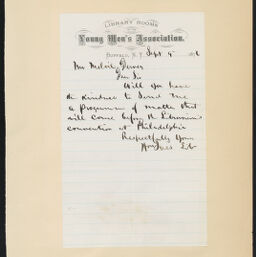 LIBRARY ROOMS
Young Men's Association.
BUFFALO, N.Y. Sept 9" 1876
Mr Melvil Dewey
Dear Sir
Will you have
the kindness to send me
a Programme of matter that
will come before the Librarians
convention at Philadelphia
Respectfully Yours
Wm Ives Lib